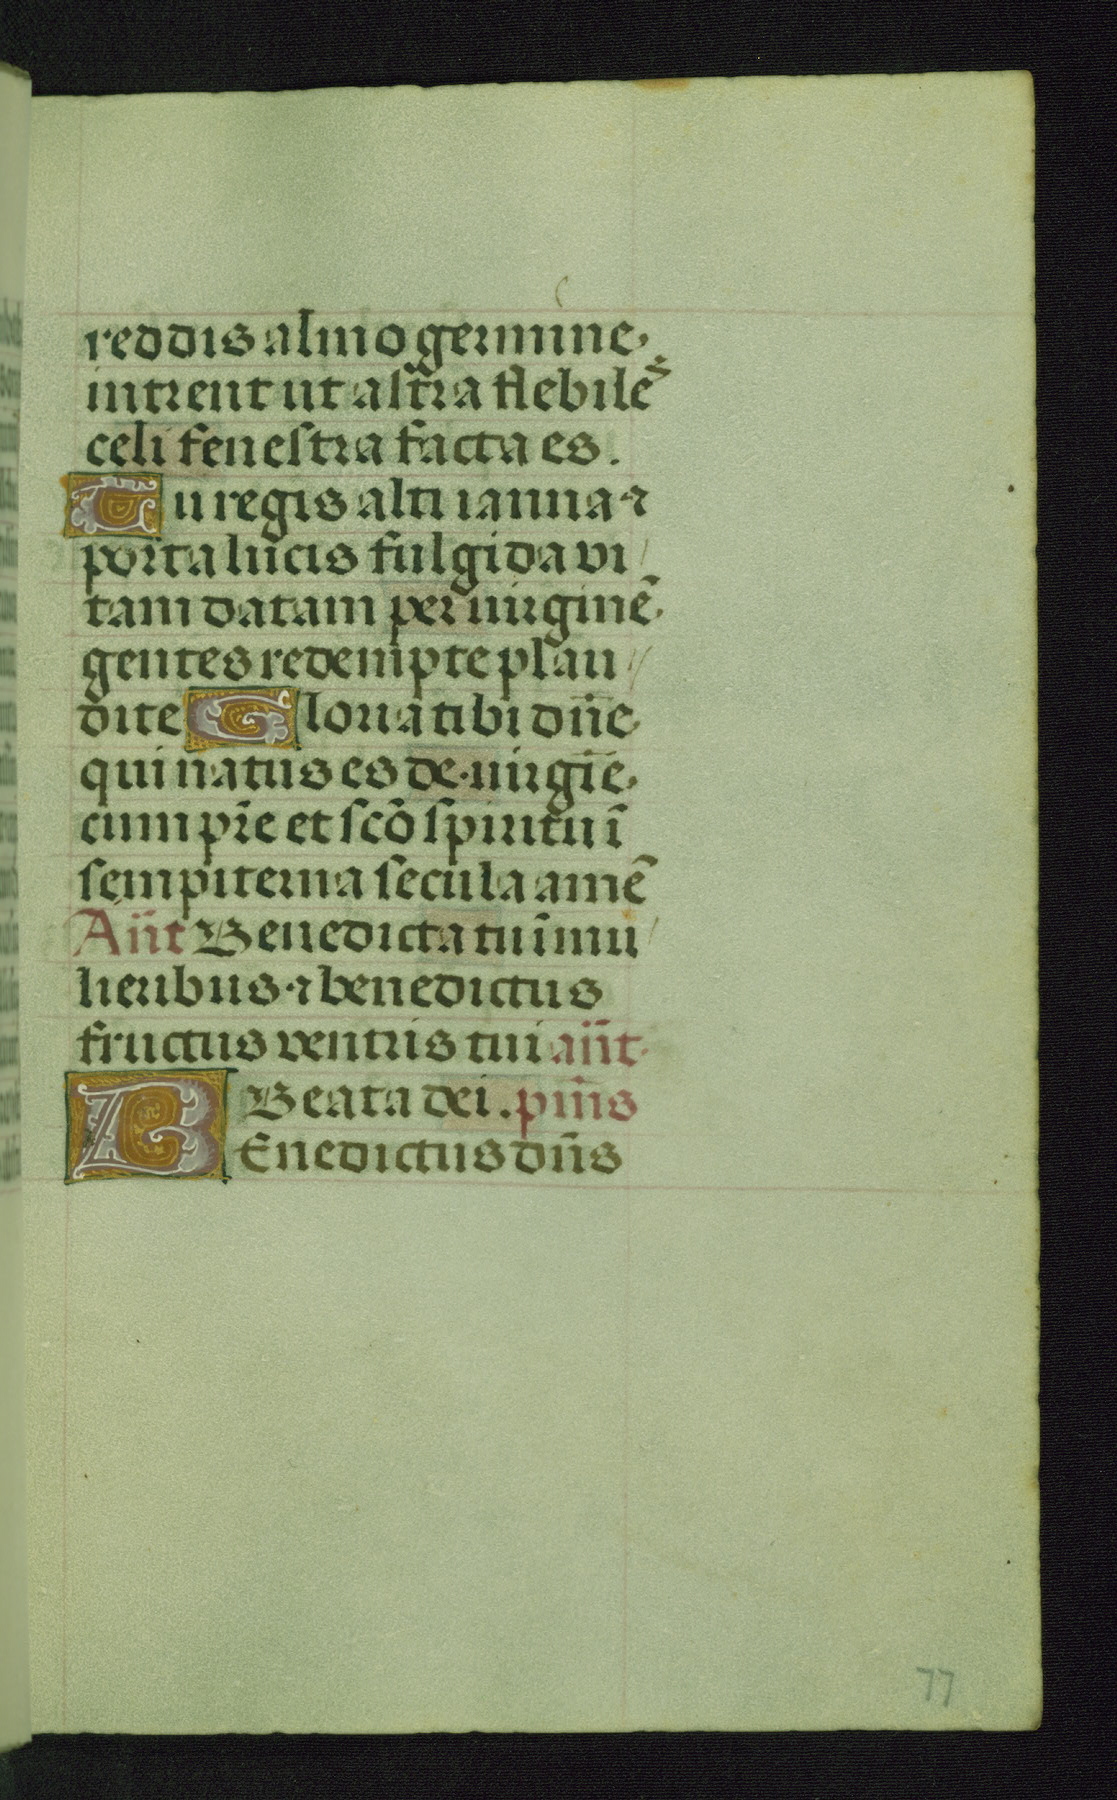 reddis almo germine·
intrent ut astra flebiles
celi fenestra facta es.
Tu regis alti ianua ⁊
porta lucis fulgida vi/
tam datam per uirginē·
gentes redempte plau//
dite Gloria tibi dn̄e·
qui natus es de·uirgīe·
cum pr̄e et scō spiritu ī
sempiterna secula amē
An̄t Benedicta tu ī mu/
lieribus·⁊ benedictus
fructus ventris tui an̄t·
Beata dei. pm̄s
BEnedictus dn̄s
77